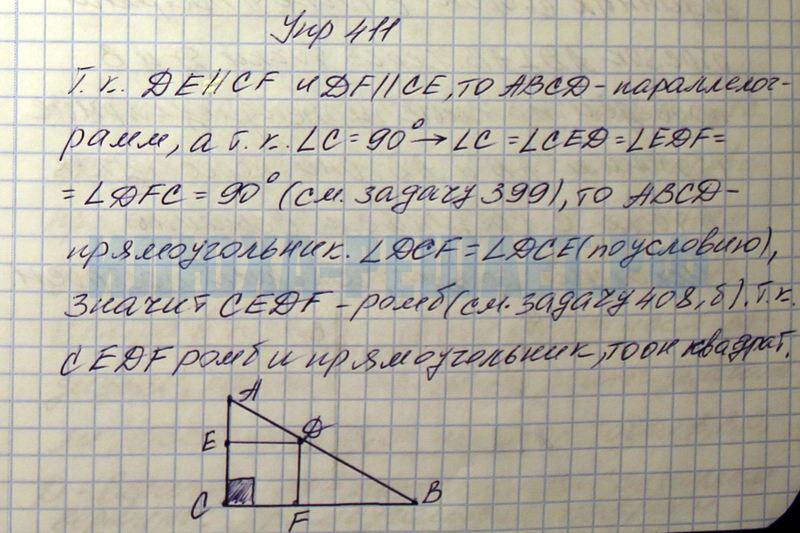 Упр 411
Т. к. DE||CF и DF||CE, то ABCD - параллелог-
рамм, а т. к. ∠C = 90° → ∠C = ∠CED = ∠EDF =
= ∠DFC = 90° (см. задачу 399), то ABCD -
прямоугольник. ∠DCF = ∠DCE (по условию),
значит CEDF - ромб (см. задачу 408, б). Т. к.
CEDF ромб и прямоугольник, то он квадрат.
A
E D
C F B